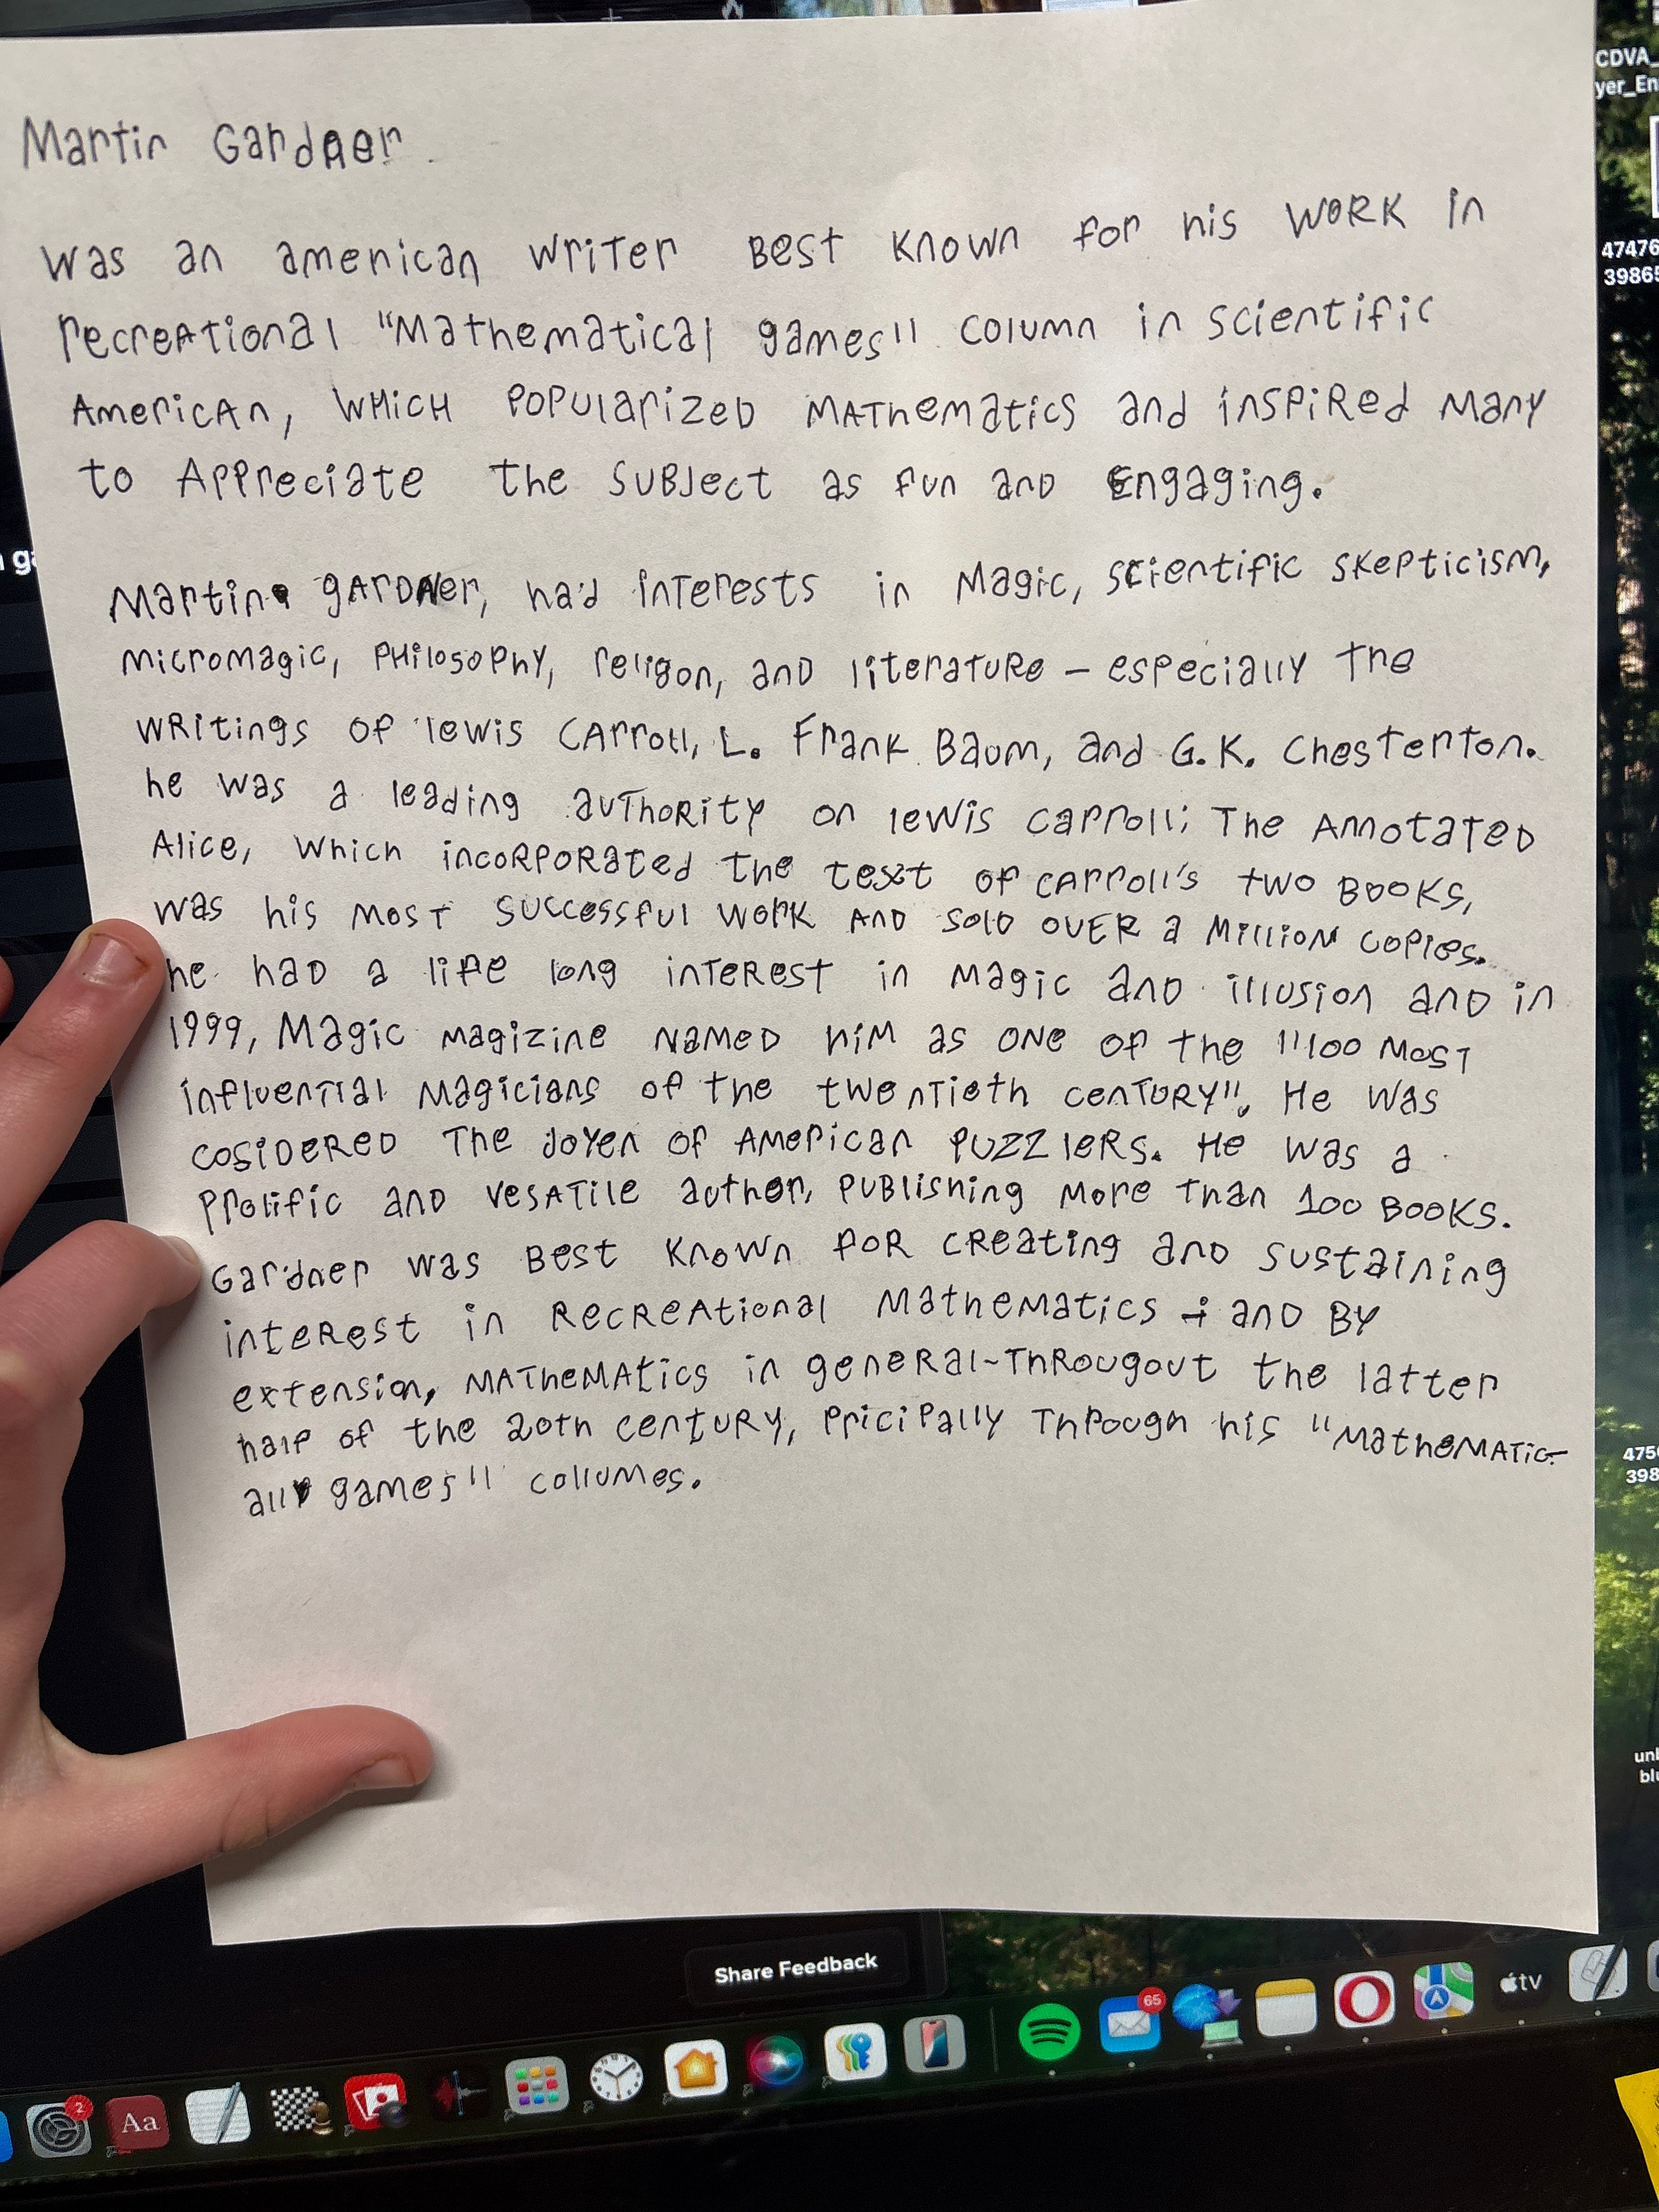 Martin Gardner
was an american writer Best Known for his WORK in
recreational "Mathematical games" column in scientific
American, WHICH POPUlarized MATHematics and inspired Many
to Appreciate the SUBJect as fun and Engaging.
Martin gARDNer, had interests in Magic, scientific skepticism,
Micromagic, PHilosophy, religon, and literature – especially The
WRitings of lewis CArroll, L. Frank Baum, and G.K. Chesterton.
he was a leading auThority on lewis carroll; The Annotated
Alice, Which incorporated the text of CArroll's two Books,
was his most successful work AND sold over a Million copies.
he had a life long interest in magic and illusion and in
1999, Magic magizine NAMED him as ONE of the "100 Most
influential Magicians of the twentieth century". He was
COSIDERED The doyen of AMerican PUZZlers. He was a
Prolific and vesatile author, PUBlishing More than 100 BOOKS.
Gardner was Best Known for creating and sustaining
interest in Recreational Mathematics – and BY
extension, MATHeMAtics in general-Througout the latter
half of the 20th century, Pricipally Through his "Mathematic-
all games" collumes.
Share Feedback
CDVA_
yer_En
47476
3986
475
398
65
tv
2
Aa